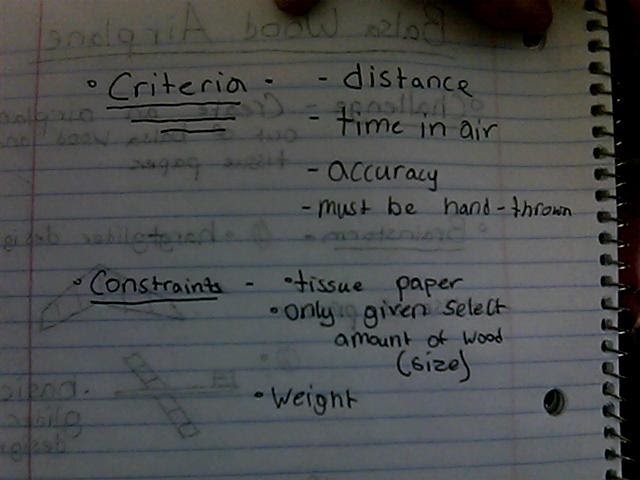 • Criteria • - distance
- time in air
- accuracy
- must be hand-thrown
• Constraints - • tissue paper
• only given select
amount of wood
(size)
• weight
Balsa Wood Airplane